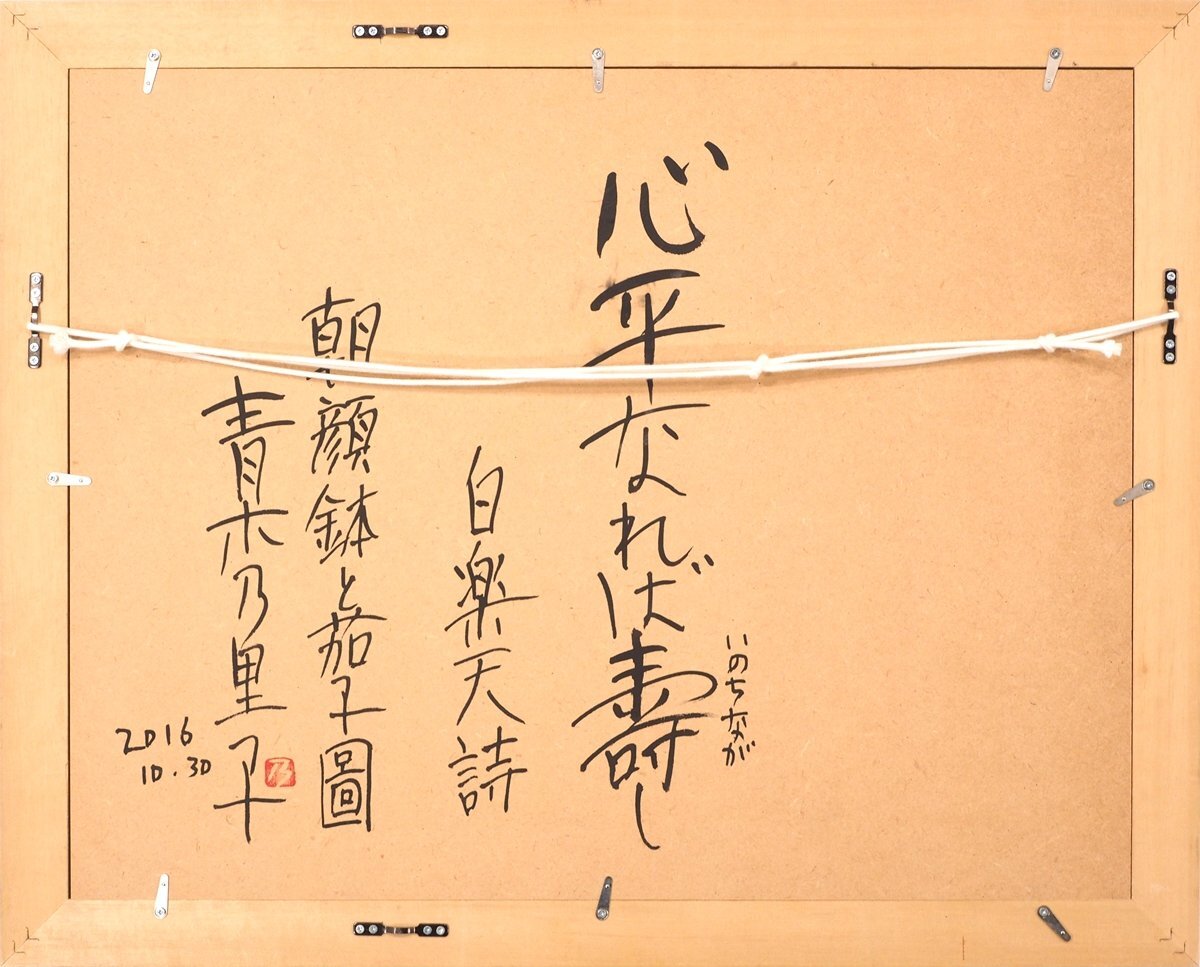 心平なれば壽し
いのちなが
白楽天詩
朝顔鉢と茄子圖
青木乃里子
乃
2016
10.30